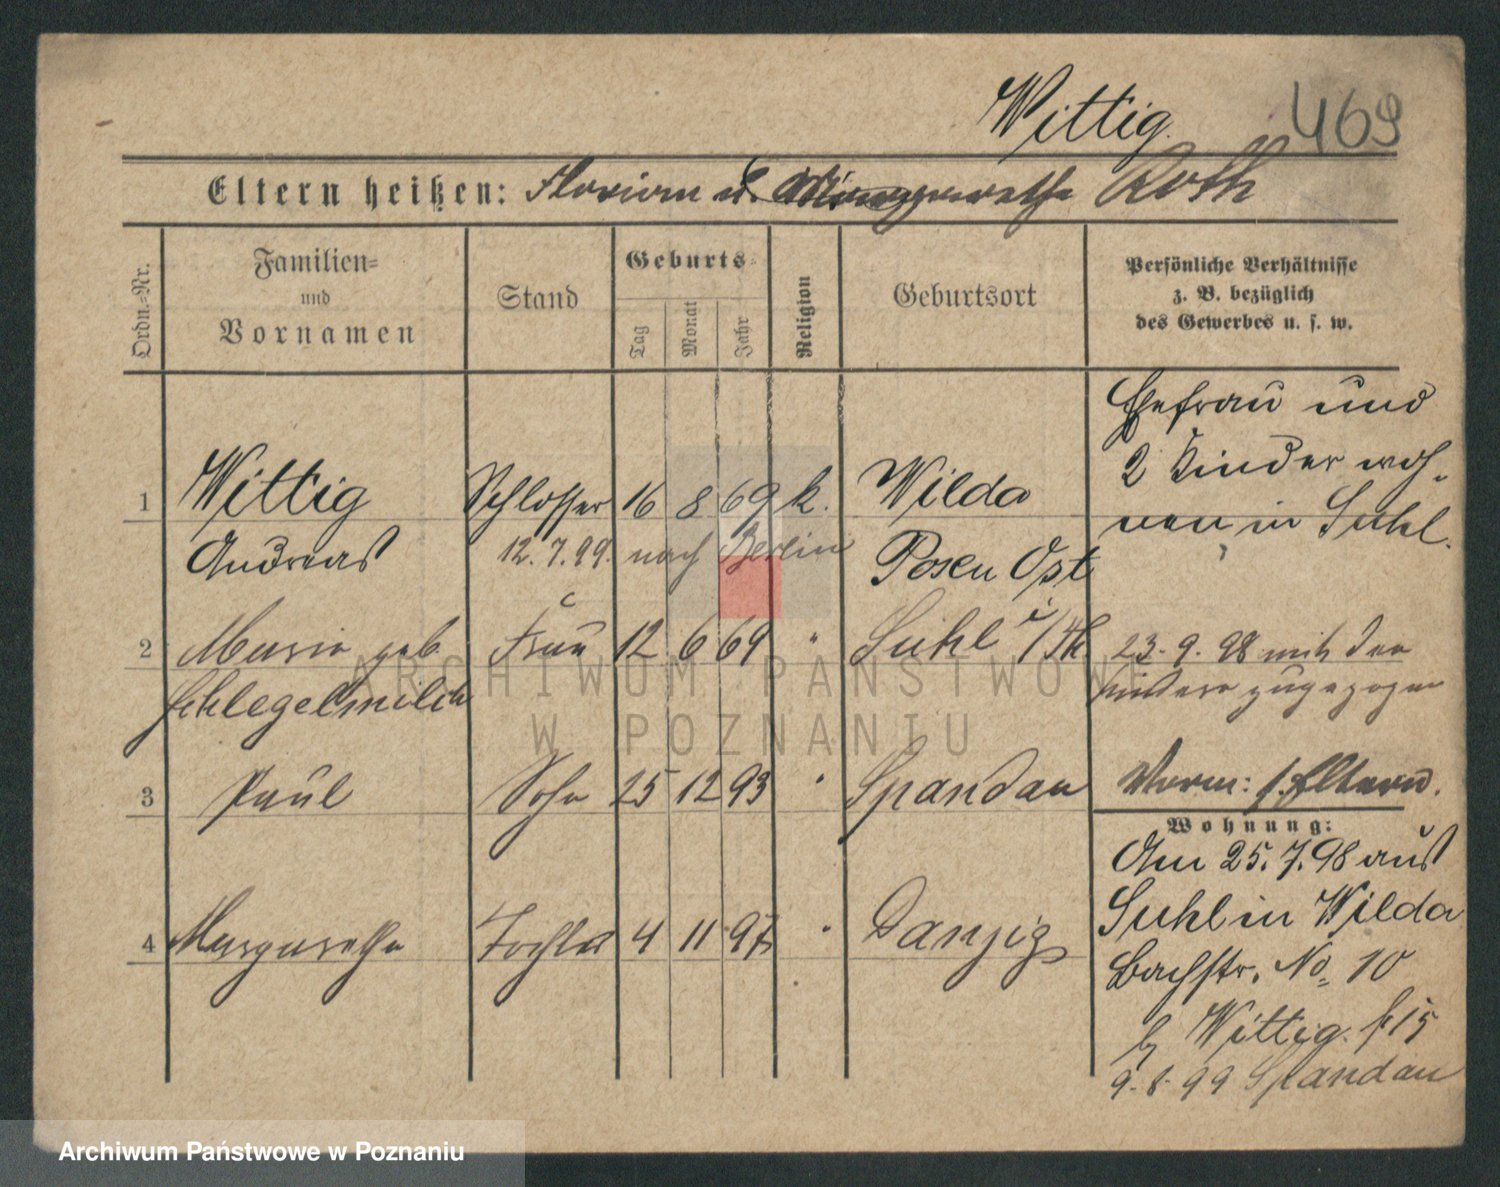 Wittig.
469
Eltern heißen: Florian u. Margarethe Roth
Ordn.-Nr.
Familien-
und
Vornamen
Stand
Geburts-
Tag
Monat
Jahr
Religion
Geburtsort
Persönliche Verhältnisse
z. B. bezüglich
des Gewerbes u. s. w.
Ehefrau und
2 Kinder woh-
nen in Suhl.
1 Wittig Schlosser 16 8 69 k. Wilda
Andreas 12.7.99. nach Berlin Posen Ost
2 Maria geb. Frau 12 6 69 " Suhl i/Th.
Schlegelmilch
23.9.98 mit den
Kindern zugezogen
3 Paul Sohn 25 12 93 " Spandau
Vorm: s. Eltern.
Wohnung:
Am 25.7.98 aus
Suhl in Wilda
Bachstr. No 10
b/ Wittig. 15
9.8.99 Spandau
4 Margarethe Tochter 4 11 97 " Danzig
ARCHIWUM PAŃSTWOWE
W POZNANIU
Archiwum Państwowe w Poznaniu